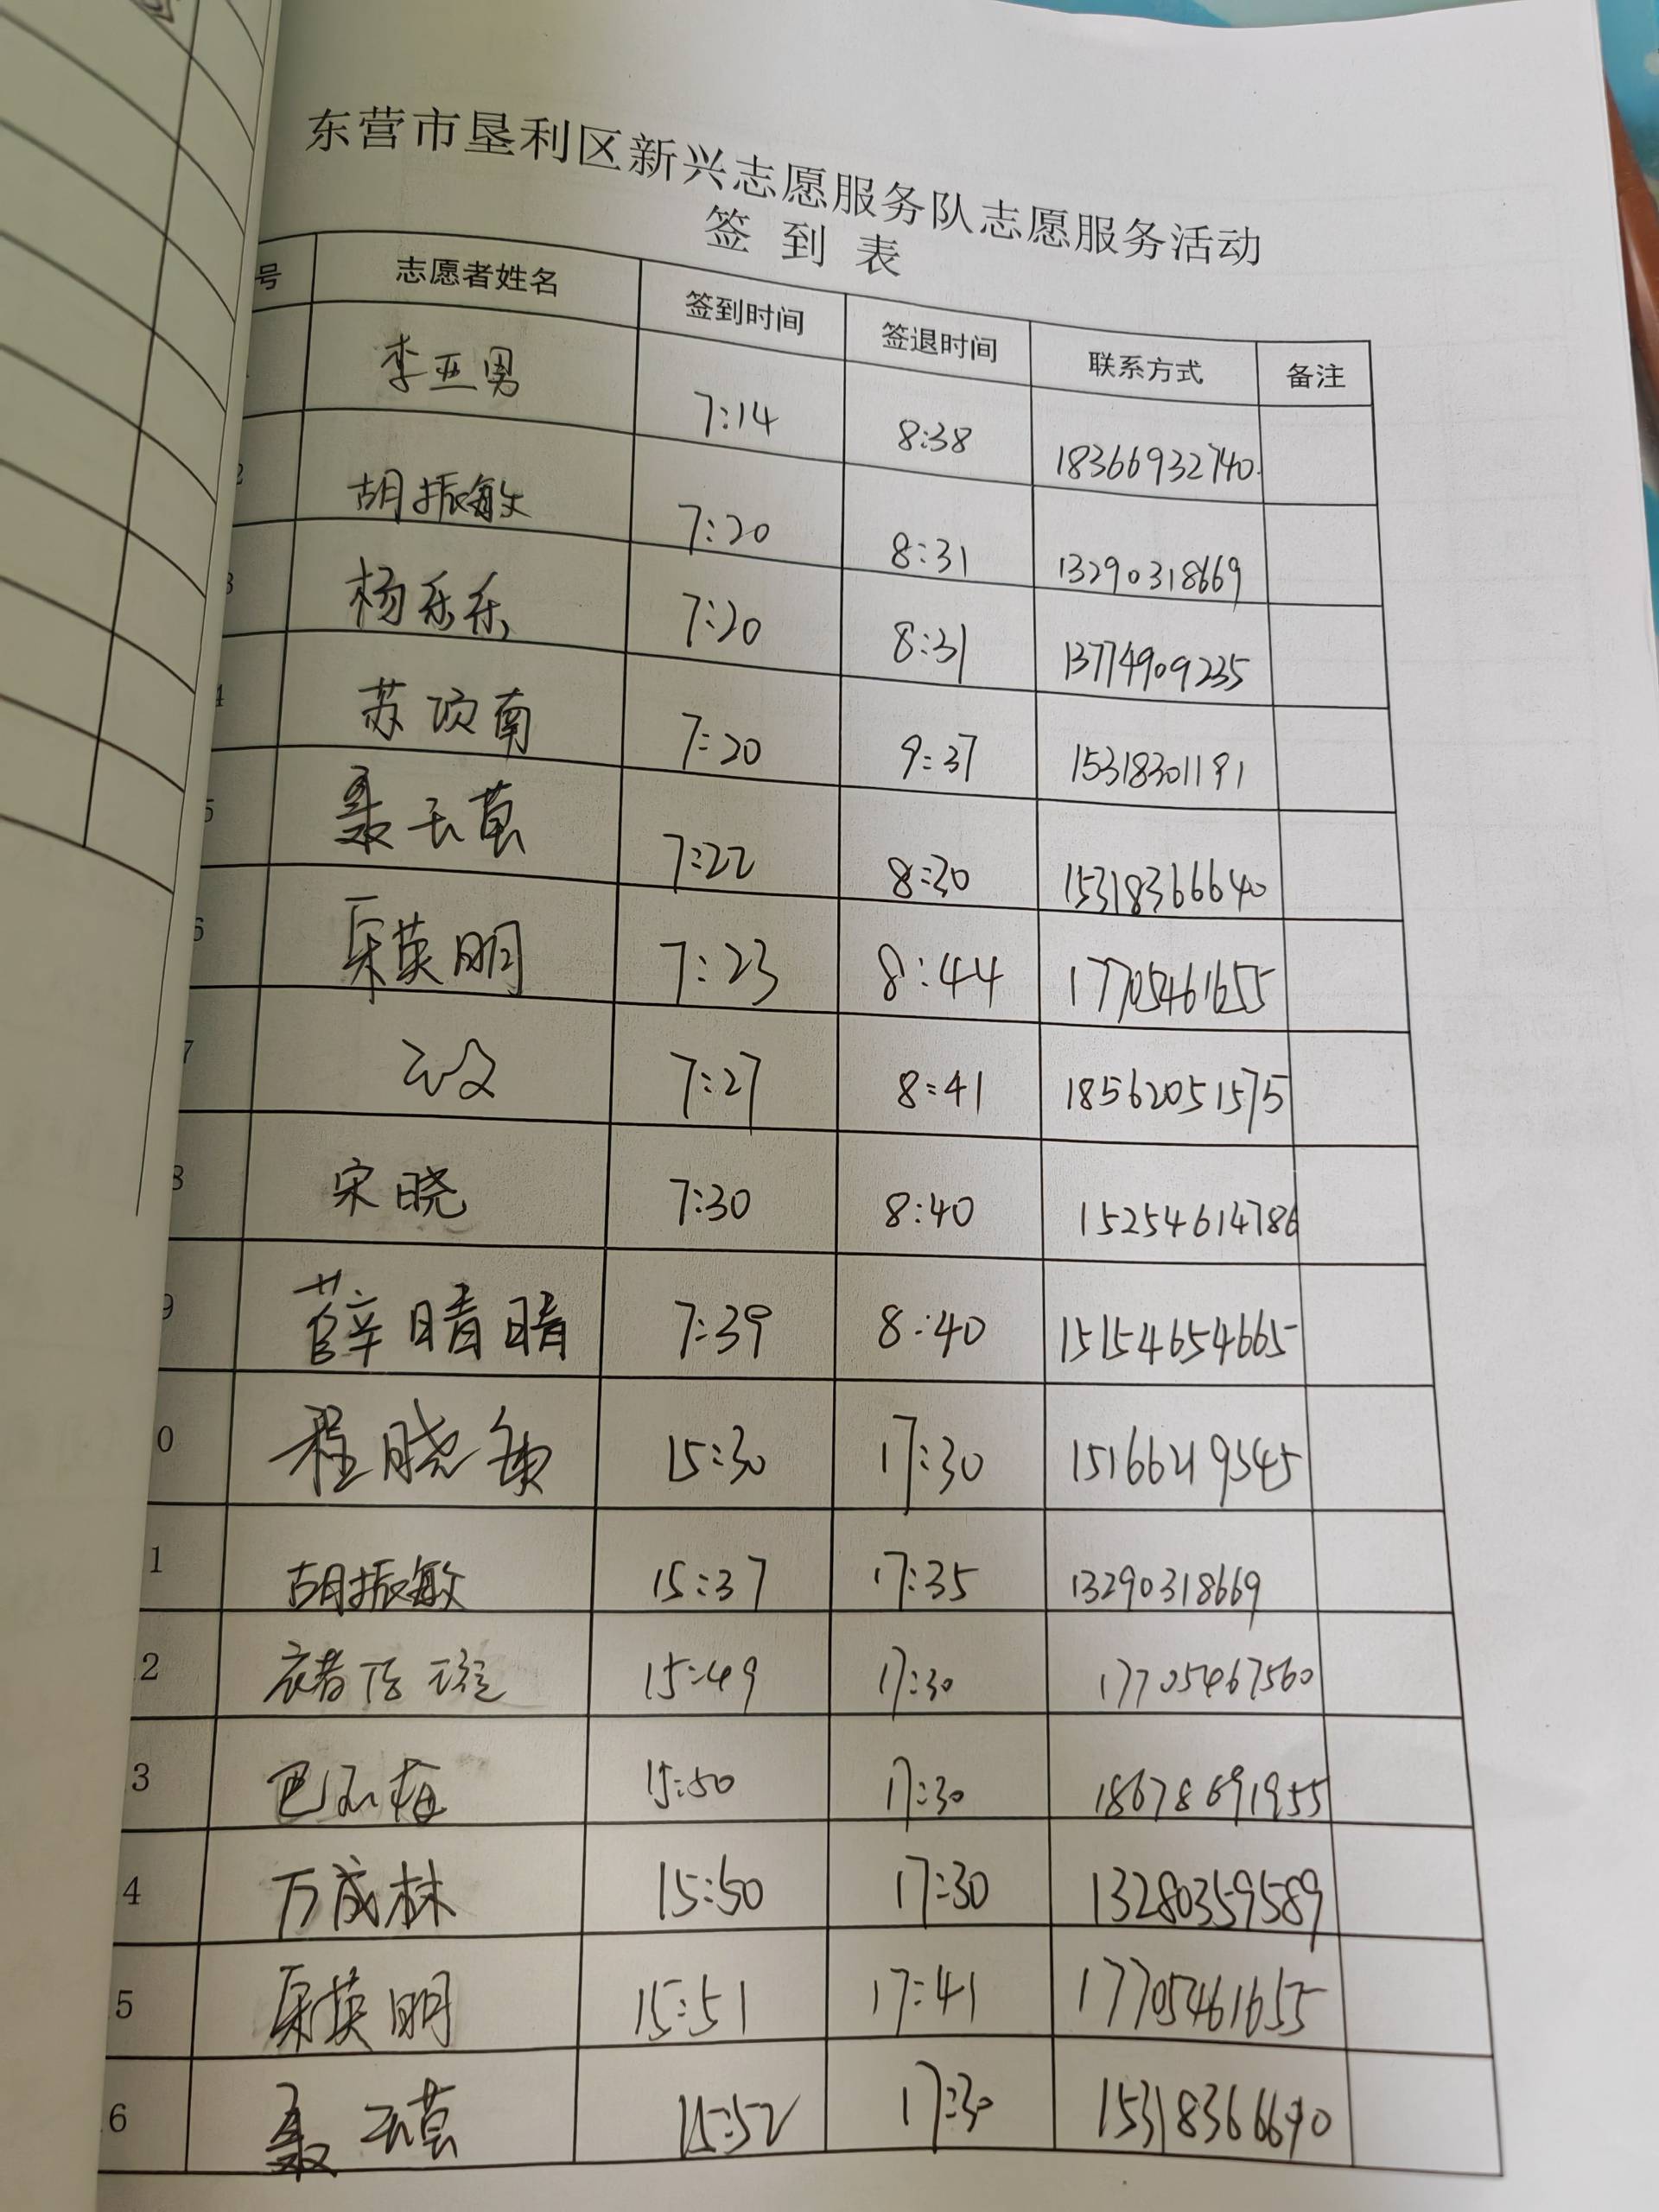 东营市垦利区新兴志愿服务队志愿服务活动
签到表
号 志愿者姓名 签到时间 签退时间 联系方式 备注
李亚男 7:14 8:38 18366932740
2 胡振敏 7:20 8:31 13290318669
3 杨乐乐 7:20 8:31 13774909235
4 苏项南 7:20 9:37 15318301191
5 聂云莫 7:22 8:30 15318366640
6 英明 7:23 8:44 17705461655
7 7:27 8:41 18562051575
8 宋晓 7:30 8:40 15254614786
9 薛晴晴 7:39 8:40 15154654665
0 程晓 15:30 17:30 15166219345
1 胡振敏 15:37 17:35 13290318669
2 15:49 17:30 17705467560
3 巴 15:50 17:30 18678691955
4 万成林 15:50 17:30 13280359589
5 英明 15:51 17:41 17705461655
6 聂云莫 15:52 17:30 15318366640